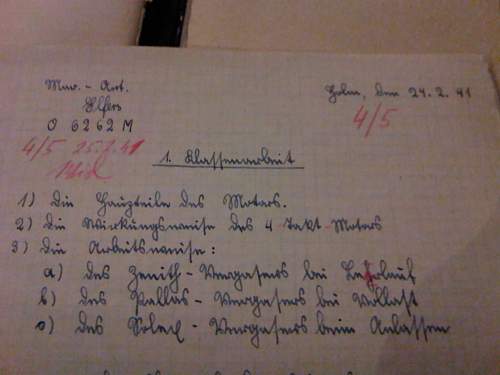 Mar. - Art.
Elfers
O 6262 M
Holm, den 24.2.41
4/5
4/5 25.2.41
1. Klassenarbeit
1) Die Hauzteile des Motors.
2) Die Wirkungsweise des 4 Takt-Motors
3) Die Arbeitsweise:
a) des Zenith-Vergasers bei Lehrlauf
b) des Pallas-Vergasers bei Vollast
c) des Solex-Vergasers beim Anlassen